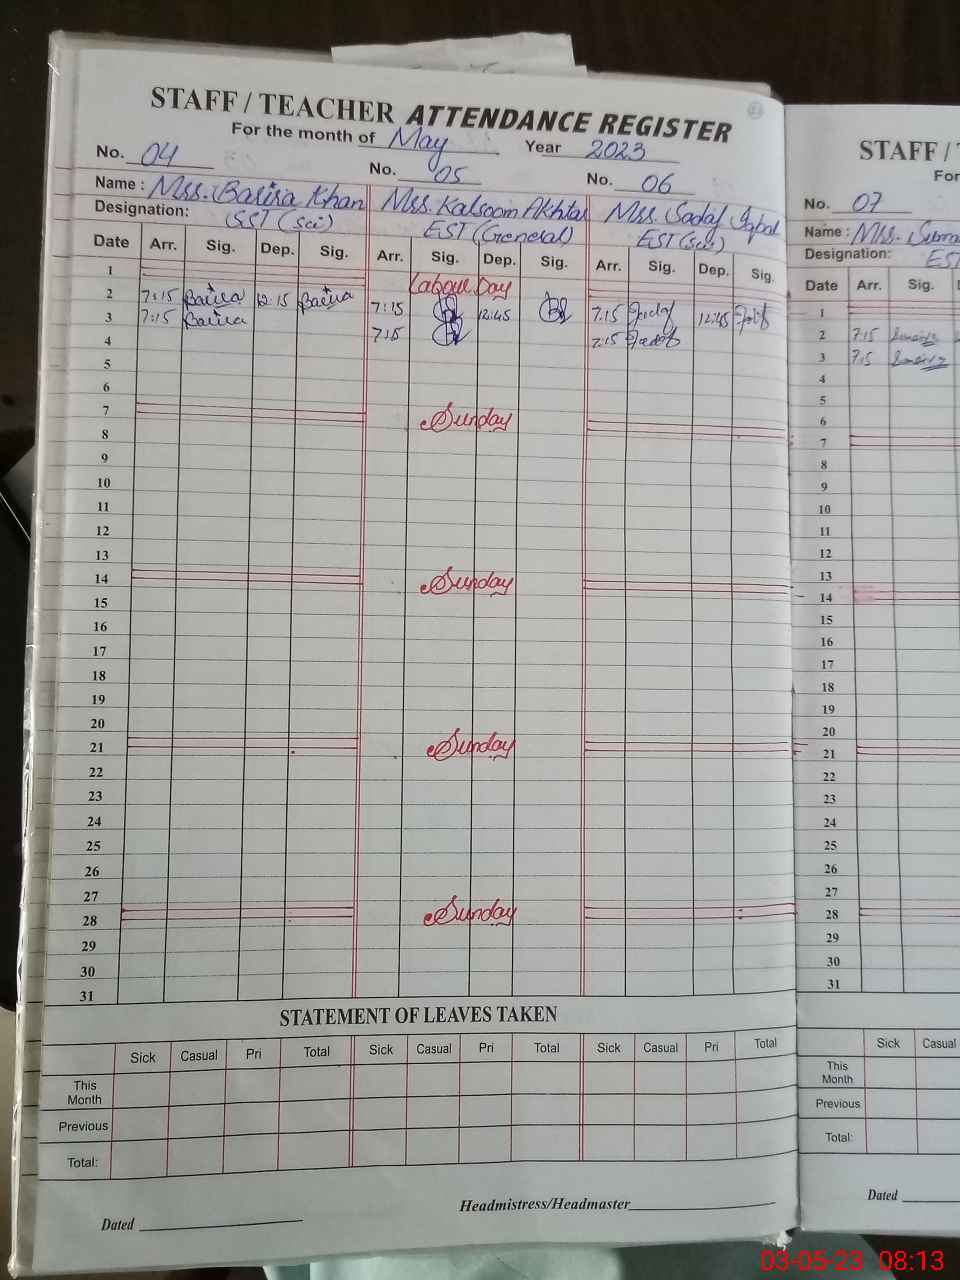 STAFF / TEACHER ATTENDANCE REGISTER
For the month of May Year 2023
No. 04 No. 05 No. 06
Name : Mss. Barira Khan Mss. Kalsoom Akhtar Mss. Sadaf Iqbal
Designation: SST (sci) EST (General) EST (sci)
Date Arr. Sig. Dep. Sig. Arr. Sig. Dep. Sig. Arr. Sig. Dep. Sig.
1 Labour Day
2 7:15 Barira 12:15 Barira 7:15 12:45 7:15 Sadaf 12:45 Sadaf
3 7:15 Barira 7:15 7:15 Sadaf
4
5
6
7 Sunday
8
9
10
11
12
13
14 Sunday
15
16
17
18
19
20
21 Sunday
22
23
24
25
26
27
28 Sunday
29
30
31
STATEMENT OF LEAVES TAKEN
Sick Casual Pri Total Sick Casual Pri Total Sick Casual Pri Total
This
Month
Previous
Total:
Dated
Headmistress/Headmaster
STAFF /
For
No. 07
Name : Mss.
Designation: EST
Date Arr. Sig.
1
2 7:15
3 7:15
4
5
6
7
8
9
10
11
12
13
14
15
16
17
18
19
20
21
22
23
24
25
26
27
28
29
30
31
Sick Casual
This
Month
Previous
Total:
Dated
03-05-23 08:13